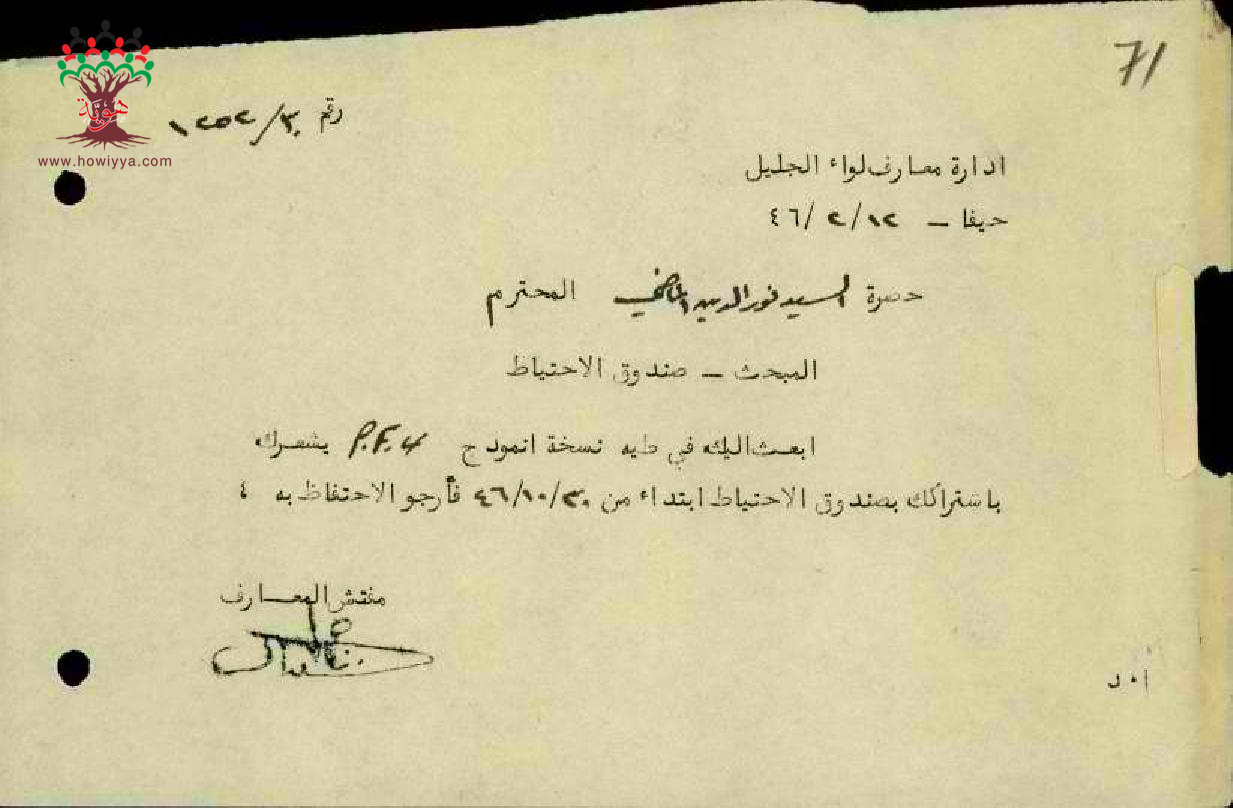 71
هويّة
www.howiyya.com
رقم ٣٠/١٢٥٢
ادارة معارف لواء الجليل
حيفا – ٤٦/٢/١٢
حضرة السيد نور الدين الماضي المحترم
المبحث – صندوق الاحتياط
ابعث اليك في طيه نسخة انموذج P.F.4 يشعرك
باشتراكك بصندوق الاحتياط ابتداء من ٤٦/١٠/٣٠ فأرجو الاحتفاظ به ٤
مفتش المعارف
أ٠د